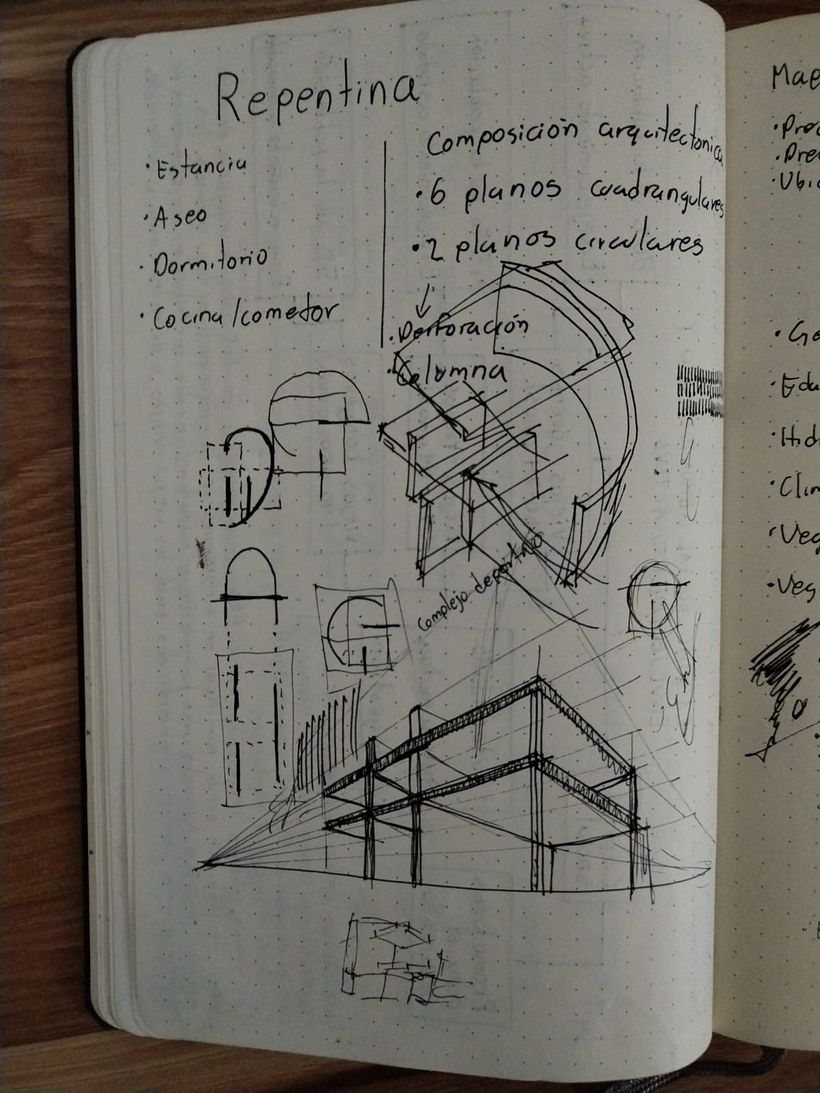 Repentina
· Estancia
· Aseo
· Dormitorio
· Cocina/comedor
Composición arquitectonica
· 6 planos cuadrangulares
· 2 planos circulares
· Perforación
· Columna
Complejo deportivo